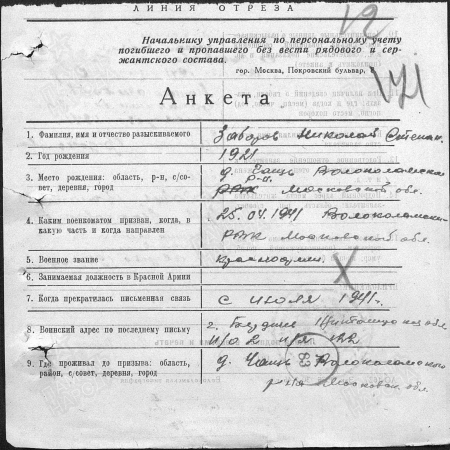 ЛИНИЯ ОТРЕЗА
Начальнику управления по персональному учету
погибшего и пропавшего без вести рядового и сер-
жантского состава.
гор. Москва, Покровский бульвар.
Анкета
1. Фамилия, имя и отчество разыскиваемого
Заборов Николай Степан.
2. Год рождения
1921
3. Место рождения: область, р-н, с/со-
вет, деревня, город
д. Чащь Волоколамско
р-н. Московской обл.
4. Каким военкоматом призван, когда, в
какую часть и когда направлен
25.04.1941 Волоколамск
РВК Московской обл.
5. Военное звание
красноарм.
6. Занимаемая должность в Красной Армии
7. Когда прекратилась письменная связь
с июля 1941г.
8. Воинский адрес по последнему письму
г.
п/о 2 п/я 122
9. Где проживал до призыва: область,
район, с/совет, деревня, город
д. Чащь Волоколамского
р-на Московск. обл.